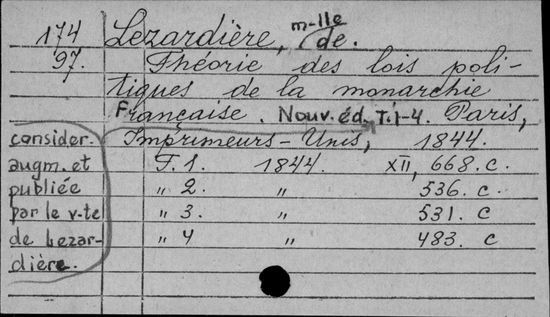 174 Lezardière, m-lle de.
97. Théorie des lois poli-
tiques de la monarchie
Française. Nouv. éd. T. 1-4. Paris,
Imprimeurs-Unis, 1844.
consider.
augm. et
publiée
par le v-te
de Lezar-
dière.
T. 1. 1844. XII, 668. c.
" 2. " 536. c.
" 3. " 531. c
" 4 " 483. c